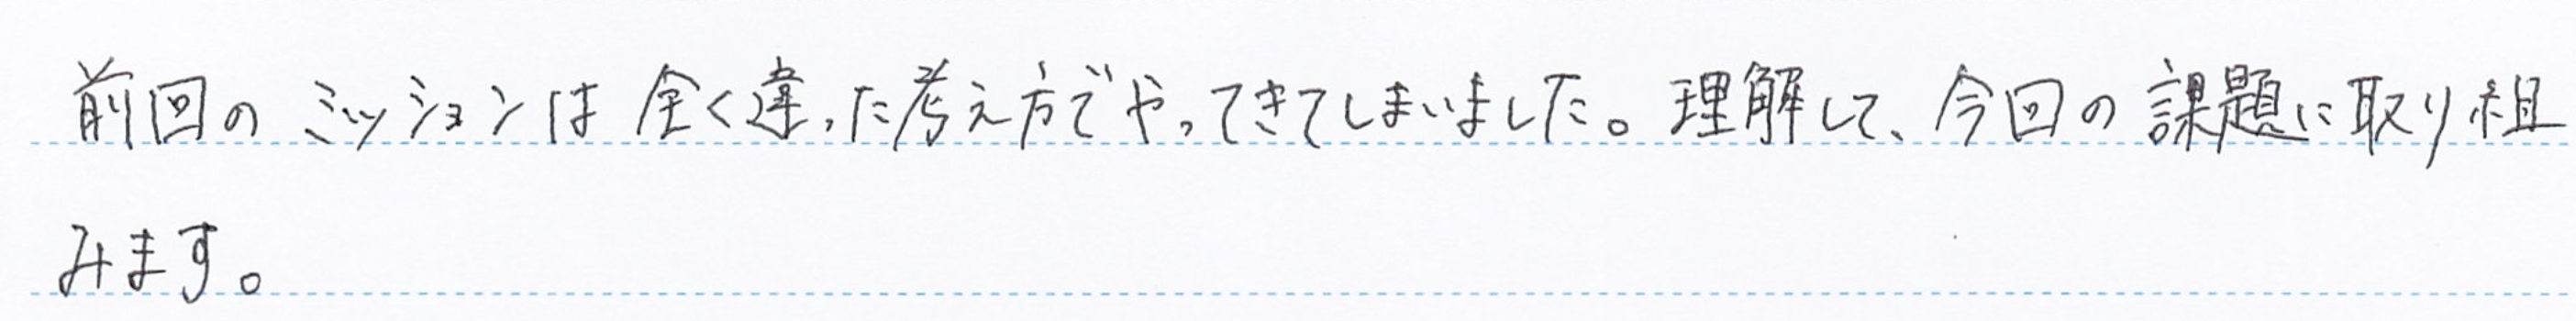 前回のミッションは全く違った考え方でやってきてしまいました。理解して、今回の課題に取り組
みます。